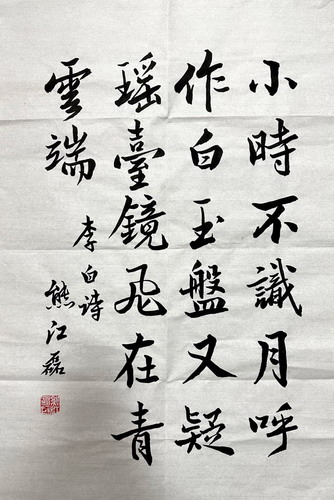 小時不識月呼
作白玉盤又疑
瑶臺鏡飛在青
雲端
李白詩
熊江磊